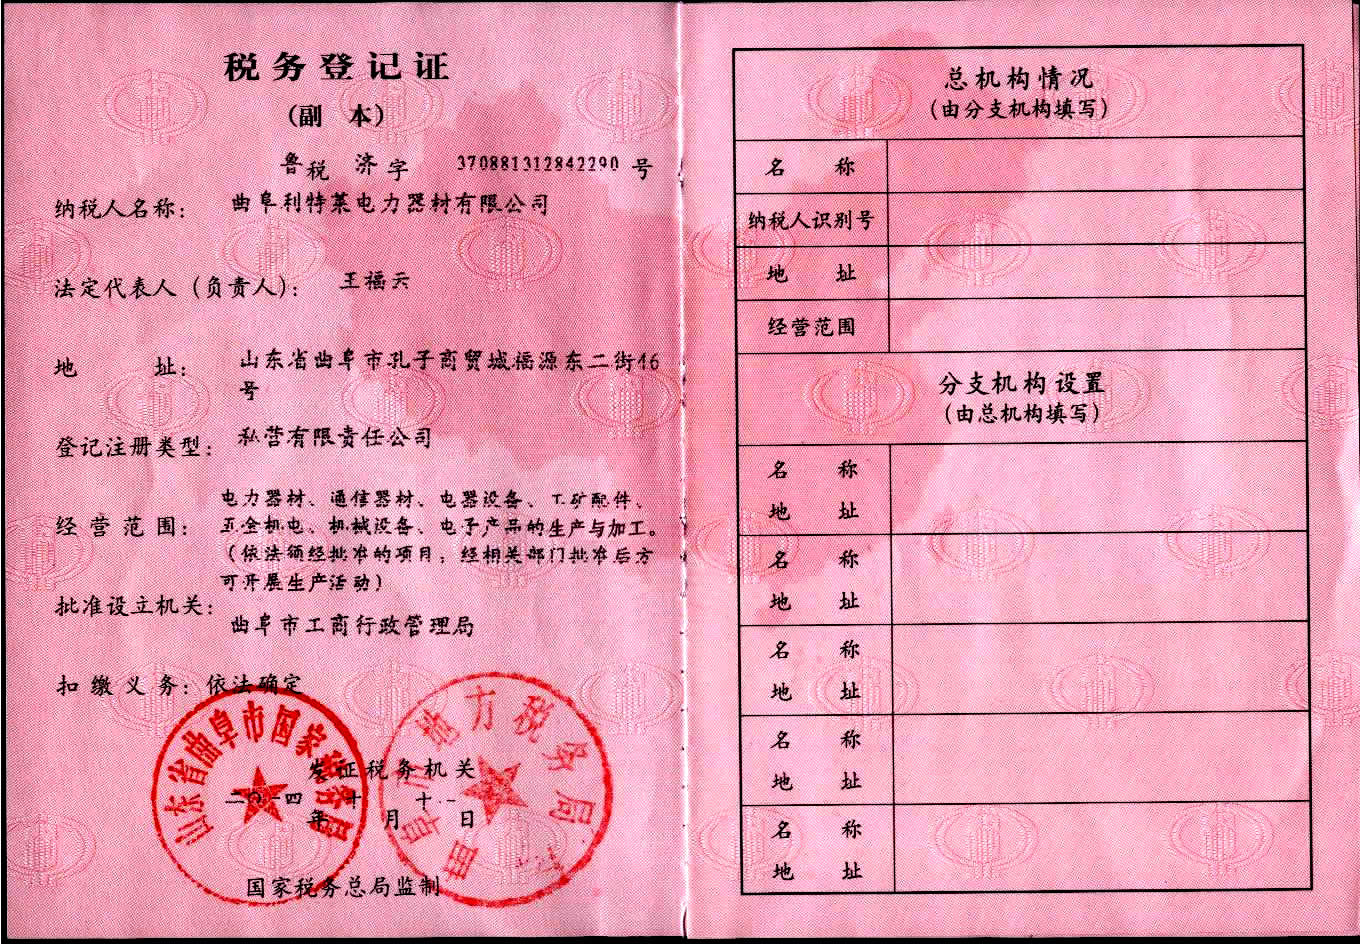 税务登记证
(副 本)
鲁税 济字 370881312842290 号
纳税人名称: 曲阜利特莱电力器材有限公司
法定代表人(负责人): 王福云
地 址: 山东省曲阜市孔子商贸城福源东二街46
号
登记注册类型: 私营有限责任公司
经营范围: 电力器材、通信器材、电器设备、工矿配件、
五金机电、机械设备、电子产品的生产与加工。
(依法须经批准的项目,经相关部门批准后方
可开展生产活动)
批准设立机关: 曲阜市工商行政管理局
扣缴义务: 依法确定
山东省曲阜市国家税务局
地方税务局
发证税务机关
二〇一四年 十月 十一日
国家税务总局监制
总机构情况
(由分支机构填写)
名 称
纳税人识别号
地 址
经营范围
分支机构设置
(由总机构填写)
名 称
地 址
名 称
地 址
名 称
地 址
名 称
地 址
名 称
地 址